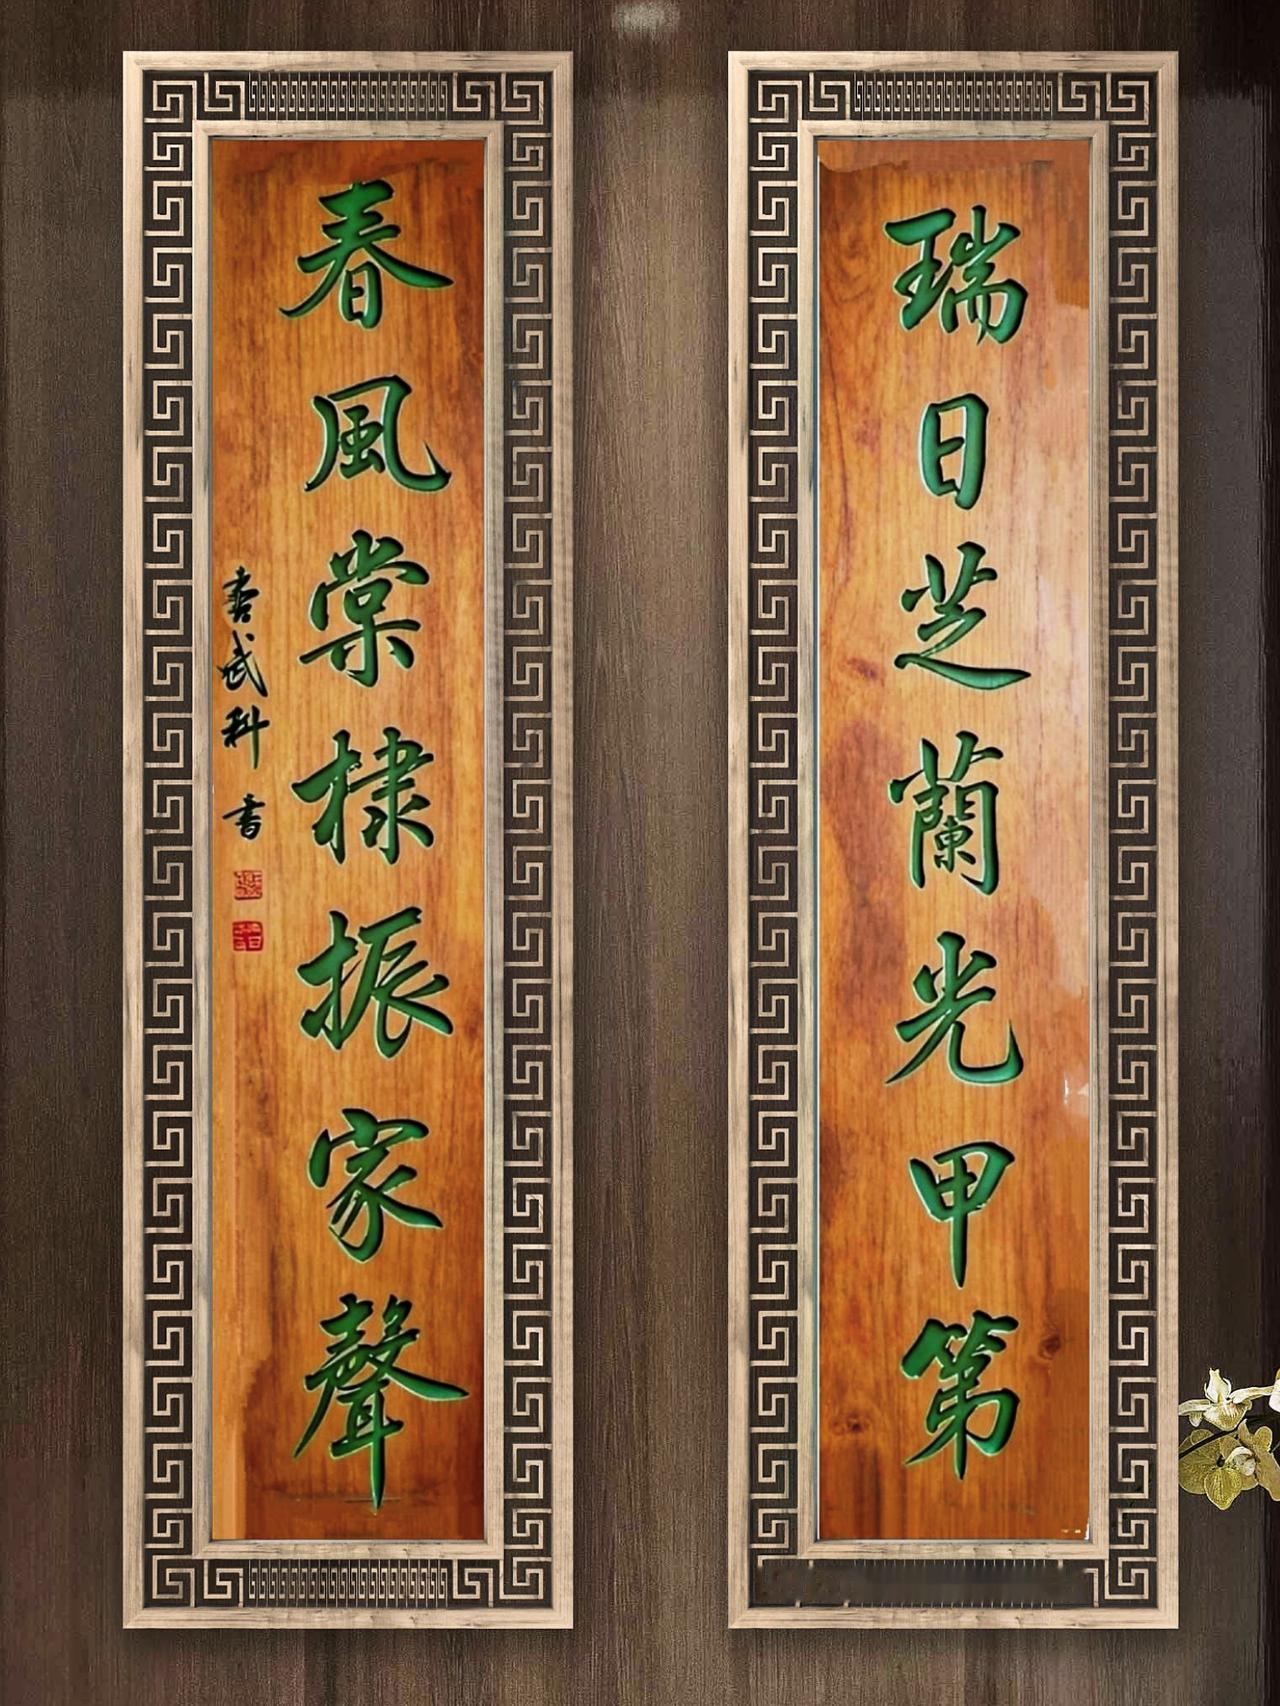 瑞日芝蘭光甲第
春風棠棣振家聲
武科書